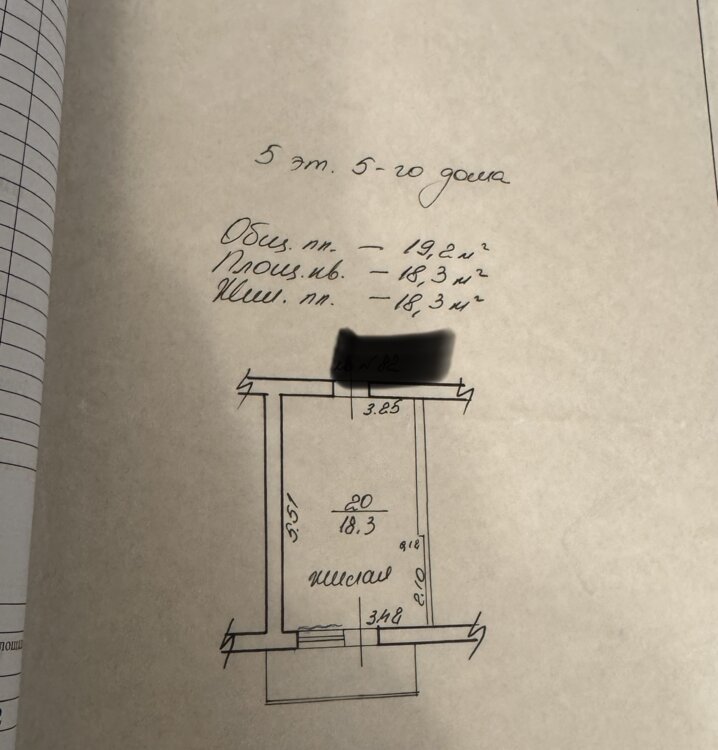 5 эт. 5-го дома
Общ. пл. — 19,2 м²
Площ. кв. — 18,3 м²
Жил. пл. — 18,3 м²
3.25
5.51
20
18.3
0,12
жилая
2.10
3.42